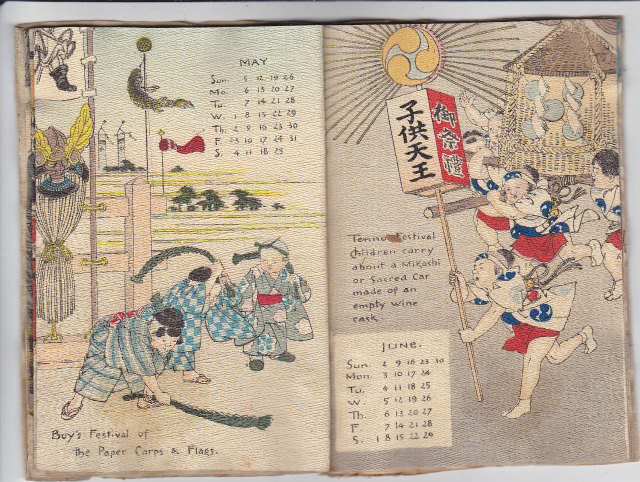 MAY
Sun. 5 12 19 26
Mo. 6 13 20 27
Tu. 7 14 21 28
W. 1 8 15 22 29
Th. 2 9 16 23 30
F. 3 10 17 24 31
S. 4 11 18 25
Boy's Festival of
the Paper Carps & Flags.
御祭禮
子供天王
Tenno Festival
Children carry
about a Mikoshi
or Sacred Car
made of an
empty wine
cask.
JUNE.
Sun. 2 9 16 23 30
Mon. 3 10 17 24
Tu. 4 11 18 25
W. 5 12 19 26
Th. 6 13 20 27
F. 7 14 21 28
S. 1 8 15 22 29